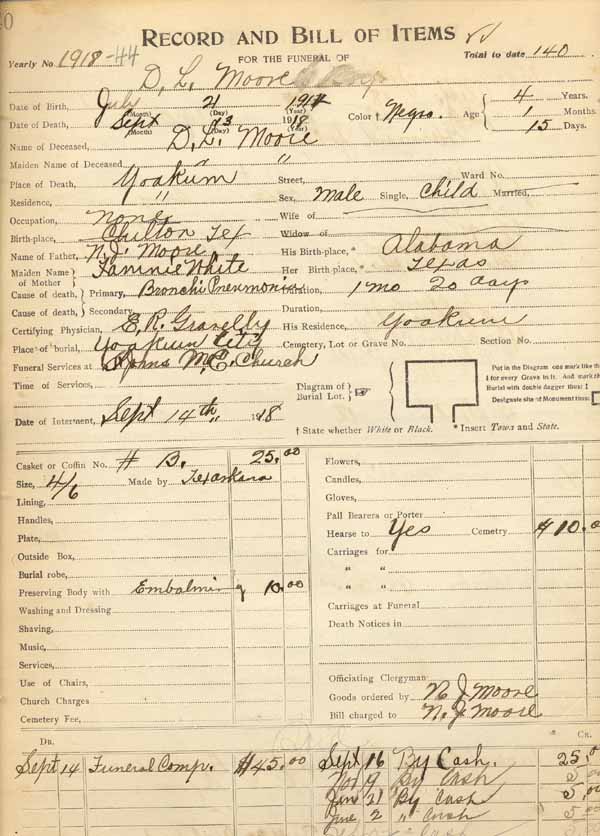 RECORD AND BILL OF ITEMS
Yearly No 1918-44 FOR THE FUNERAL OF Total to date 140
D. L. Moore
Date of Birth, July 21 1914
(Month) (Day) (Year)
Date of Death, Sept 13 1918
(Month) (Day) (Year)
Color † Negro. Age 4 Years.
1 Months.
15 Days.
Name of Deceased, D. L. Moore
Maiden Name of Deceased " "
Place of Death, Yoakum Street, Ward No.
Residence, " Sex, Male Single, Child Married,
Occupation, None Wife of
Birth-place, Chilton Tex Widow of
Name of Father, N. J. Moore His Birth-place, * Alabama
Maiden Name of Mother Fannie White Her Birth-place, * Texas
Cause of death, Primary, Bronchi Pneumonia Duration, 1 mo 20 days
Cause of death, Secondary Duration,
Certifying Physician, E. R. His Residence, Yoakum
Place of burial, Yoakum City Cemetery, Lot or Grave No. Section No.
Funeral Services at M. E. Church
Time of Services,
Diagram of Burial Lot.
Put in the Diagram one mark like th
I for every Grave in it. And mark th
Burial with double dagger thus: ‡
Designate site of Monument thus:
Date of Interment, Sept 14th 1918
† State whether White or Black. * Insert Town and State.
Casket or Coffin No. # B. 25.00 Flowers,
Size, 4/6 Made by Texarkana Candles,
Lining, Gloves,
Handles, Pall Bearers or Porter
Plate, Hearse to Yes Cemetry $10.0
Outside Box, Carriages for
Burial robe, " "
Preserving Body with Embalming 10.00 " "
Washing and Dressing Carriages at Funeral
Shaving, Death Notices in
Music,
Services,
Use of Chairs, Officiating Clergyman
Church Charges Goods ordered by N J Moore
Cemetery Fee, Bill charged to N. J Moore
DR. CR.
Sept 14 Funeral Comp. $45.00 Sept 16 By Cash. 25.0
Nov 9 By Cash 5.00
Jan 21 By Cash 5.00
June 2 " Cash 5.00